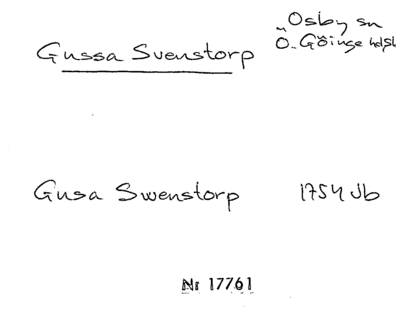 Gussa Svenstorp
Osby sn
Ö. Göinge hdsk
Gusa Swenstorp 1754 Jb
Nr 17761